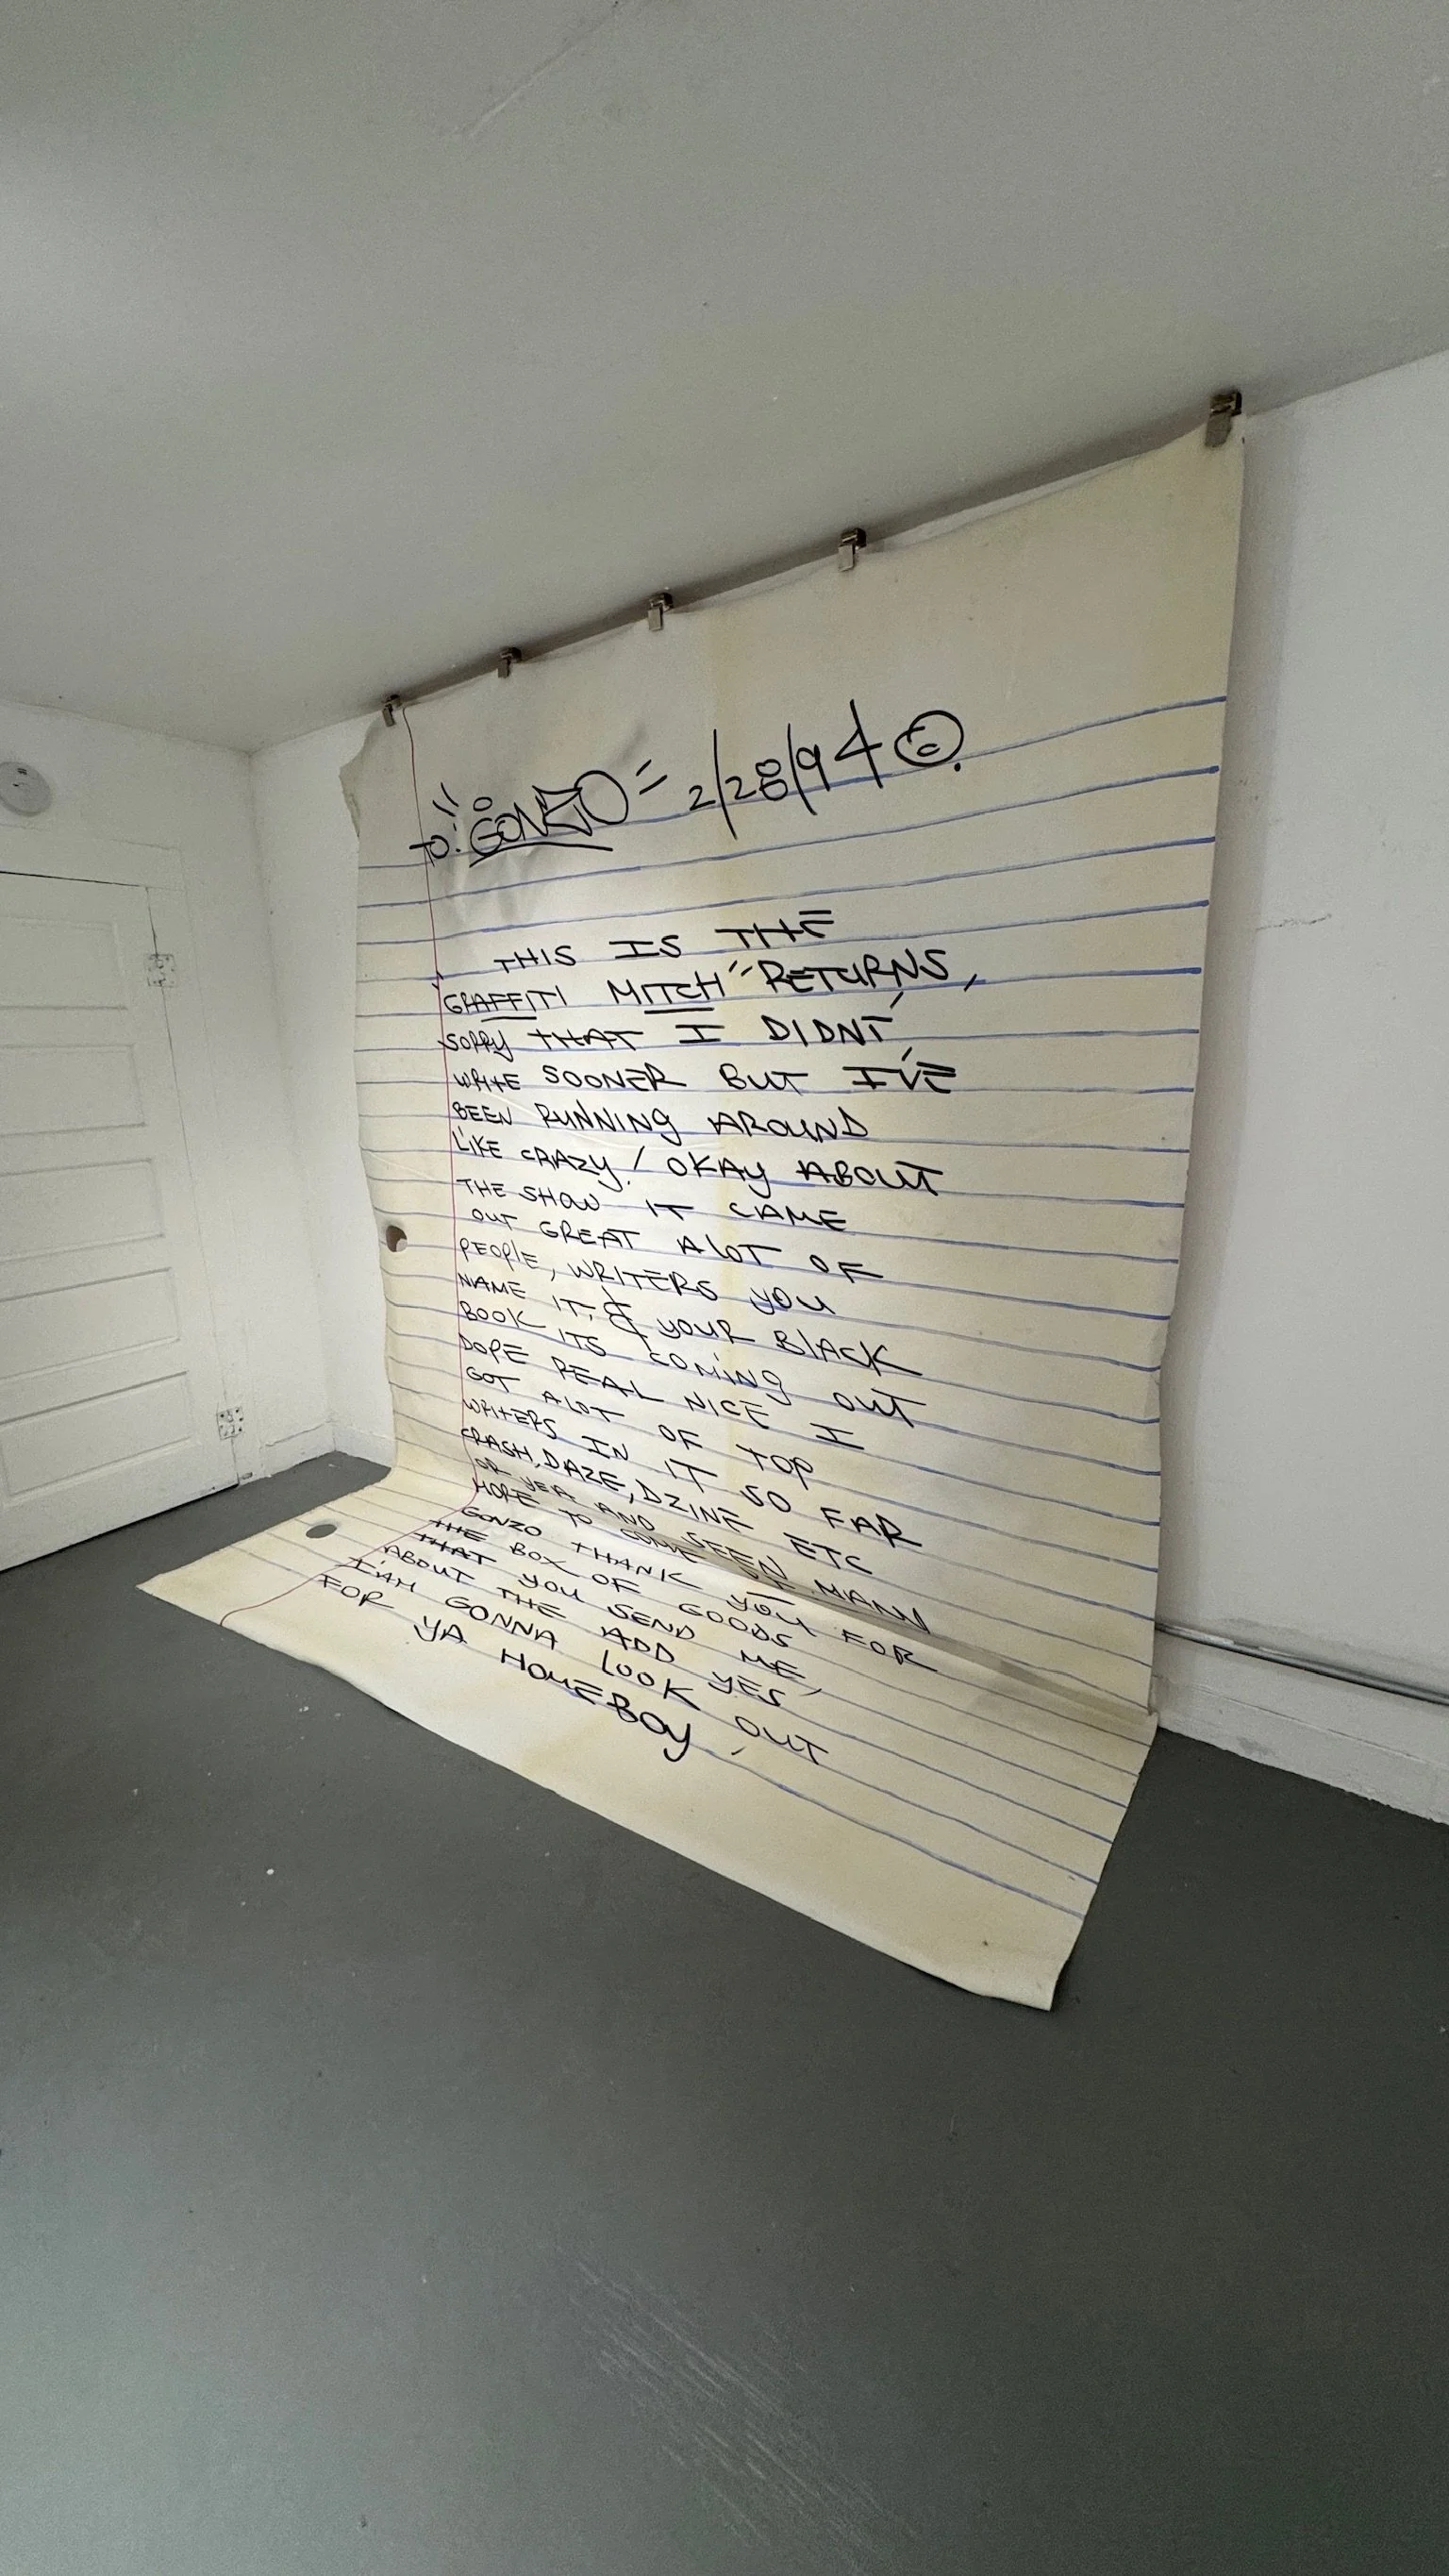 TO: "GONZO" = 2/28/94 ©.
THIS IS THE
GRAFFITI MITCH" RETURNS,
SORRY THAT I DIDN'T
WRITE SOONER BUT I'VE
BEEN RUNNING AROUND
LIKE CRAZY! OKAY ABOUT
THE SHOW IT CAME
OUT GREAT ALOT OF
PEOPLE, WRITERS YOU
NAME IT, & YOUR BLACK
BOOK ITS COMING OUT
DOPE REAL NICE I
GOT ALOT OF TOP
WRITERS IN IT SO FAR
CRASH, DAZE, DZINE ETC
OR YEA AND SEEN MANN
HOPE TO COME
GONZO THANK YOU FOR
THE BOX OF GOODS
THAT YOU SEND ME,
ABOUT THE ADD YES
I'AM GONNA LOOK OUT
FOR YA HOMEBOY.